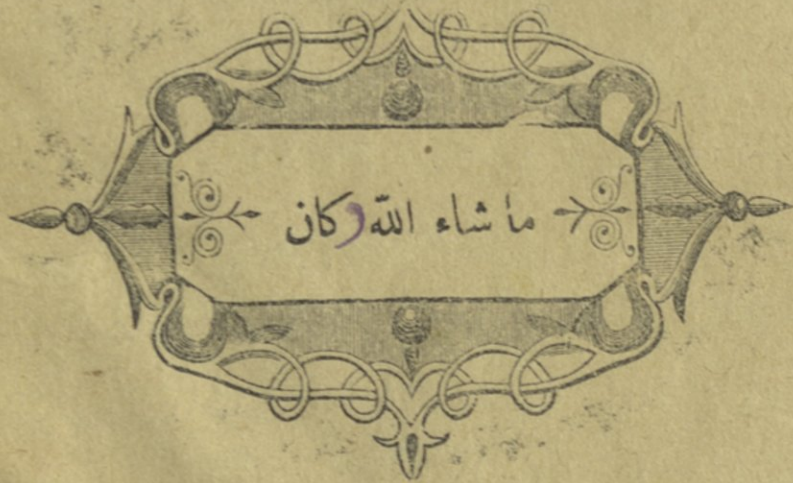 ما شاء اللّه وكان